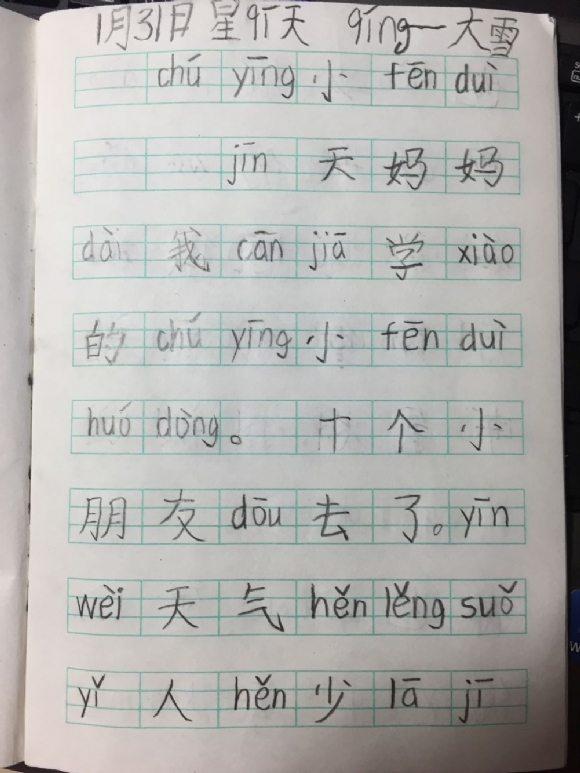 1月31日 星qī天 qíng—大雪
chú yīng 小 fēn duì
jīn 天 妈 妈
dài 我 cān jiā 学 xiào
的 chú yīng 小 fēn duì
huó dòng 。 十 个 小
朋 友 dōu 去 了。 yīn
wèi 天 气 hěn lěng suǒ
yǐ 人 hěn 少 lā jī